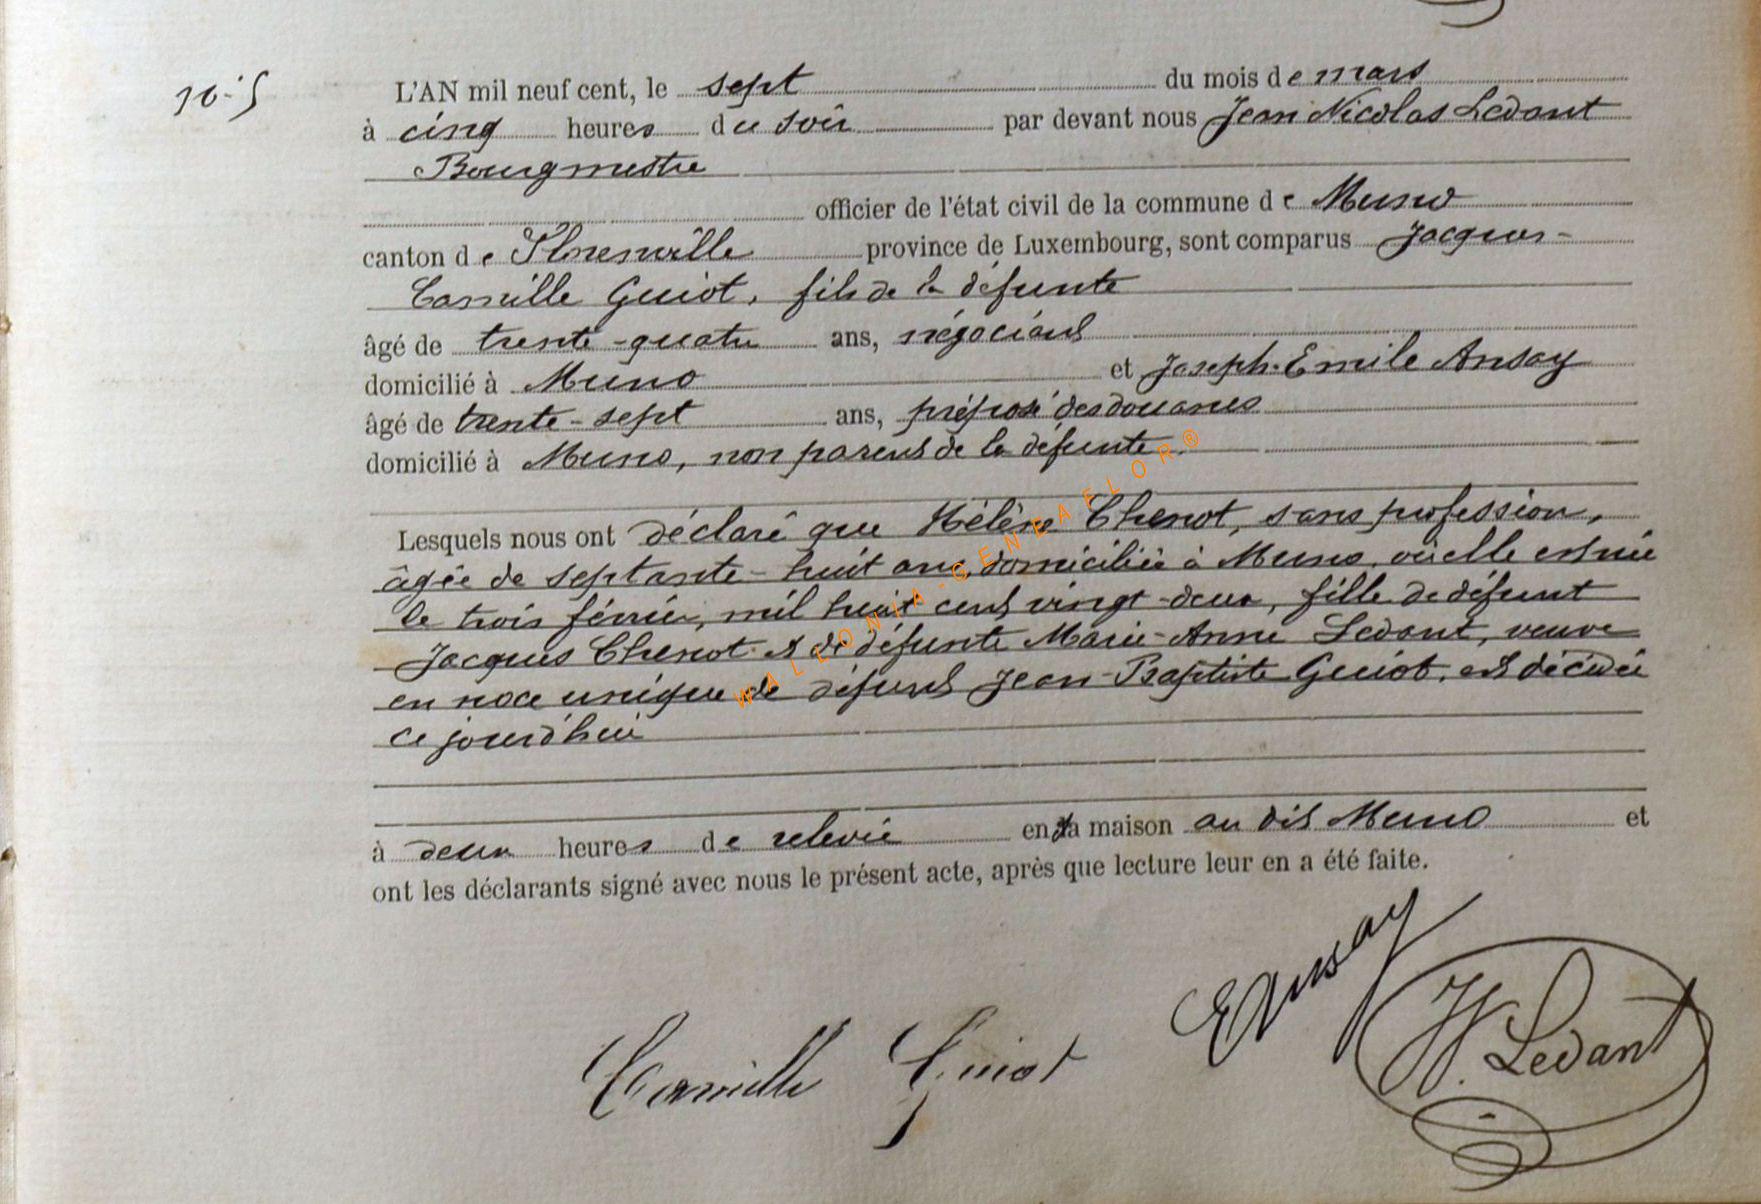 L'AN mil neuf cent, le sept du mois de mars
à cinq heures du soir par devant nous Jean Nicolas Ledant
Bourgmestre
officier de l'état civil de la commune de Muno
canton de Florenville province de Luxembourg, sont comparus Jacques-
Camille Guiot, fils de la défunte
âgé de trente-quatre ans, négociant
domicilié à Muno et Joseph-Emile Ansay
âgé de trente-sept ans, préposé des douanes
domicilié à Muno, non parent de la défunte.
Lesquels nous ont déclaré que Hélène Chenot, sans profession,
âgée de septante-huit ans, domiciliée à Muno, où elle est née
le trois février, mil huit cent vingt-deux, fille de défunt
Jacques Chenot et de défunte Marie-Anne Ledant, veuve
en noce unique de défunt Jean-Baptiste Guiot, est décédée
ce jourd'hui
à deux heures de relevée en sa maison au dit Muno et
ont les déclarants signé avec nous le présent acte, après que lecture leur en a été faite.
EAnsay
Camille Guiot
N. Ledant
WALLONIA-GENEAFLOR®